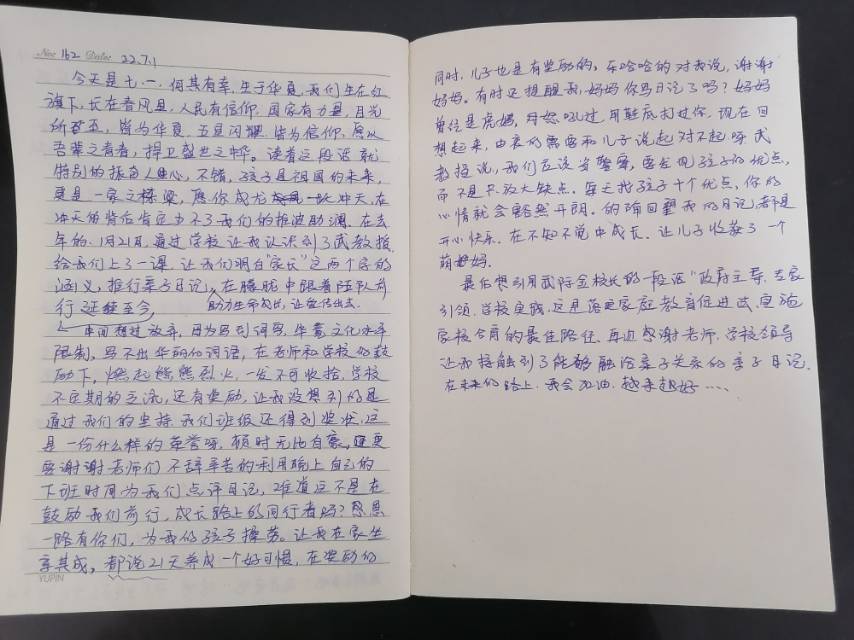 No: 162 Date: 22.7.1
今天是七.一.何其有幸,生于华夏,我们生在红
旗下,长在春风里,人民有信仰,国家有力量,目光
所至,皆为华夏,五星闪耀,皆为信仰,愿以
吾辈之青春,捍卫盛世之中华。读着这段话就
特别的振奋人心,不错,孩子是祖国的未来,
更是一家之栋梁,愿你成龙 冲天,在
冲天的背后肯定少不了我们的推波助澜。在去
年的.1月21月,通过学校让我认识到了武教授,
给我们上了一课,让我们明白"家长"这两个字的
涵义,推行亲子日记,在朦胧中跟着陆队前
行延续至今, 助力生命成长,让爱传出去.
中间想过放弃,因为写到词穷,毕竟文化水平
限制,写不出华丽的词语,在老师和学校的鼓
励下,燃起熊熊烈火,一发不可收拾,学校
不定期的交流,还有奖励,让我没想到的是
通过我们的坚持我们班级还得到奖状,这
是一份什么样的荣誉呀,顿时无比自豪,更
要谢谢老师们不辞辛苦的利用晚上自己的
下班时间为我们点评日记,难道这不是在
鼓励我们前行,成长路上的同行者吗?感恩
一路有你们,为我的孩子操劳。让我在家坐
享其成,都说21天养成一个好习惯,在奖励的
YUPIN
同时,儿子也是有奖励的,乐哈哈的对我说,谢谢
妈妈。有时还提醒我,妈妈你写日记了吗?妈妈
曾经是虎妈,用怒吼过,用鞋底打过你,现在回
想起来,由衷的需要和儿子说起对不起呀武
教授说,我们应该当警察,要发现孩子的优点,
而不是只放大缺点,每天找孩子十个优点,你的
心情就会豁然开朗。的确回望我的日记都是
开心快乐,在不知不觉中成长,让儿子收获了一个
萌妈妈.
最后想引用武际金校长的一段话"政府主导,专家
引领,学校实践,这是落实家庭教育促进法,实施
家校合育的最佳路径,再边感谢老师,学校领导
让我接触到了能够融洽亲子关系的亲子日记.
在未来的路上,我会加油,越来越好……